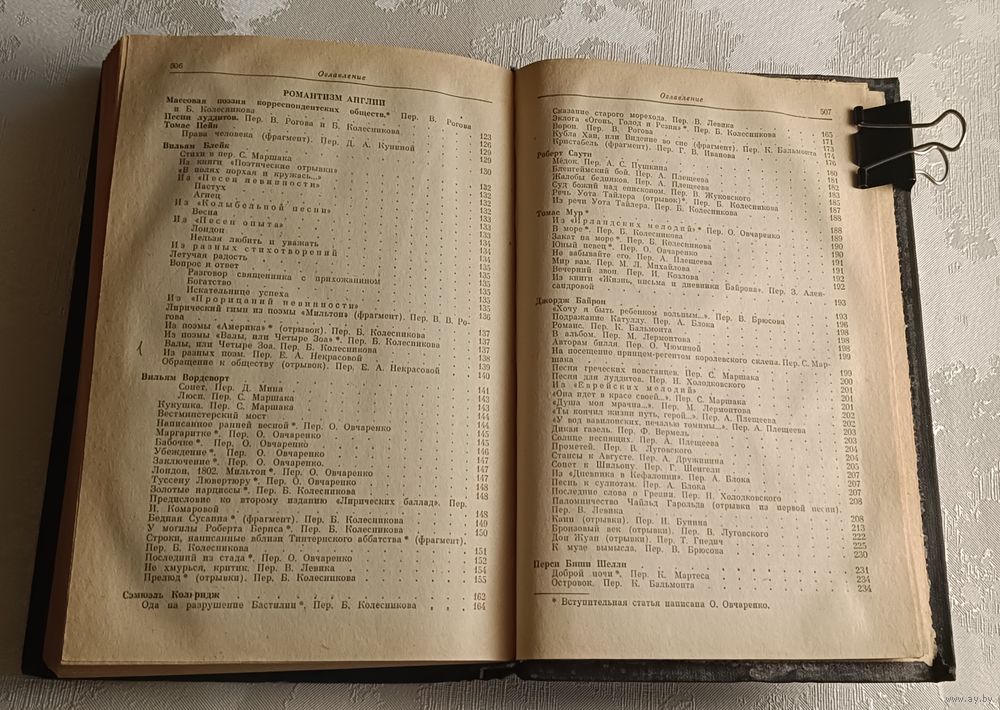 506
Оглавление
РОМАНТИЗМ АНГЛИИ
Массовая поэзия корреспондентских обществ.* Пер. В. Рогова
и Б. Колесникова 123
Песни луддитов. Пер. В. Рогова и Б. Колесникова 126
Томас Пейн 129
Права человека (фрагмент). Пер. Д. А. Куниной 129
Вильям Блейк 130
Стихи в пер. С. Маршака
Из книги «Поэтические отрывки»
«В полях порхая и кружась...» 132
Из «Песен невинности»
Пастух 132
Агнец 132
Из «Колыбельной песни» 133
Весна 133
Из «Песен опыта»
Лондон 134
Нельзя любить и уважать 134
Из разных стихотворений
Летучая радость 135
Вопрос и ответ 135
Разговор священника с прихожанином 135
Богатство 135
Искательнице успеха 135
Из «Прорицаний невинности» 135
Лирический гимн из поэмы «Мильтон» (фрагмент). Пер. В. В. Ро-
гова 136
Из поэмы «Америка»* (отрывок). Пер. Б. Колесникова 137
Из поэмы «Валы, или Четыре Зоа»*. Пер. Б. Колесникова 137
Валы, или Четыре Зоа. Пер. Б. Колесникова 137
Из разных поэм. Пер. Е. А. Некрасовой 138
Обращение к обществу (отрывок). Пер. Е. А. Некрасовой 139
Вильям Вордсворт 140
Сонет. Пер. Д. Мина 141
Люси. Пер. С. Маршака 141
Кукушка. Пер. С. Маршака 143
Вестминстерский мост 143
Написанное ранней весной*. Пер. О. Овчаренко 144
Маргаритке*. Пер. О. Овчаренко 144
Бабочке*. Пер. О. Овчаренко 145
Убеждение*. Пер. О. Овчаренко 146
Заключение*. Пер. О. Овчаренко. 147
Лондон, 1802. Мильтон*. Пер. О. Овчаренко 147
Туссену Лювертюру*. Пер. О. Овчаренко 147
Золотые нарциссы*. Пер. Б. Колесникова 148
Предисловие ко второму изданию «Лирических баллад». Пер.
И. Комаровой 148
Бедная Сусанна* (фрагмент). Пер. Б. Колесникова 149
У могилы Роберта Бернса*. Пер. Б. Колесникова 150
Строки, написанные вблизи Тинтернского аббатства* (фрагмент).
Пер. Б. Колесникова 151
Последний из стада*. Пер. О. Овчаренко 152
Не хмурься, критик. Пер. В. Левика 154
Прелюд* (отрывки). Пер. Б. Колесникова 155
Сэмюэль Кольридж 162
Ода на разрушение Бастилии*, Пер. Б. Колесникова 164
Оглавление
507
Сказание старого морехода. Пер. В. Левика 165
Эклога «Огонь, Голод и Резня»*. Пер. Б. Колесникова 171
Ворон. Пер. В. Рогова 173
Кубла Хан, или Видение во сне (фрагмент). Пер. К. Бальмонта 174
Кристабель (фрагмент). Пер. Г. В. Иванова 176
Роберт Саути 180
Мёдок. Пер. А. С. Пушкина 181
Бленгеймский бой. Пер. А. Плещеева 182
Жалобы бедняков. Пер. А. Плещеева 183
Суд божий над епископом. Пер. В. Жуковского 185
Речь Уота Тайлера (отрывок)*. Пер. Б. Колесникова 187
Из речи Уота Тайлера. Пер. Б. Колесникова 188
Томас Мур*
Из «Ирландских мелодий»* Пер. О. Овчаренко 188
В море*. Пер. Б. Колесникова 189
Закат на море*. Пер. Б. Колесникова 190
Юный певец*. Пер. О. Овчаренко 190
Не забывайте его. Пер. А. Плещеева 191
Мир вам. Пер. М. Л. Михайлова 191
Вечерний звон. Пер. И. Козлова 192
Из книги «Жизнь, письма и дневники Байрона». Пер. З. Алек-
сандровой 192
Джордж Байрон 193
«Хочу я быть ребенком вольным...». Пер. В. Брюсова 193
Подражание Катуллу. Пер. А. Блока 196
Романс. Пер. К. Бальмонта 198
В альбом. Пер. М. Лермонтова 198
Авторам билля. Пер. О. Чюминой 198
На посещение принцем-регентом королевского склепа. Пер. С. Мар-
шака 199
Песня греческих повстанцев. Пер. С. Маршака 199
Песня для луддитов. Пер. Н. Холодковского 200
Из «Еврейских мелодий» 201
«Она идет в красе своей...». Пер. С. Маршака 201
«Душа моя мрачна...». Пер. М. Лермонтова 201
«Ты кончил жизни путь, герой...». Пер. А. Плещеева 202
«У вод вавилонских, печалью томимы...». Пер. А. Плещеева 202
Дикая газель. Пер. Ф. Вермель 203
Солнце неспящих. Пер. А. Плещеева 203
Прометей. Пер. В. Луговского 204
Стансы к Августе. Пер. А. Дружинина 204
Сонет к Шильону. Пер. Г. Шенгели 205
Из «Дневника в Кефалонии». Пер. А. Блока 207
Песнь к сулиотам. Пер. А. Блока 207
Последние слова о Греции. Пер. Н. Холодковского 207
Паломничество Чайльд Гарольда (отрывки из первой песни).
Пер. В. Левика 208
Каин (отрывки). Пер. И. Бунина 208
Бронзовый век (отрывки). Пер. В. Луговского 213
Дон Жуан (отрывки). Пер. Т. Гнедич 222
К музе вымысла. Пер. В. Брюсова 225
230
Перси Биши Шелли 231
Доброй ночи*. Пер. К. Мартеса 234
Островок. Пер. К. Бальмонта 234
* Вступительная статья написана О. Овчаренко.
www.ay.by